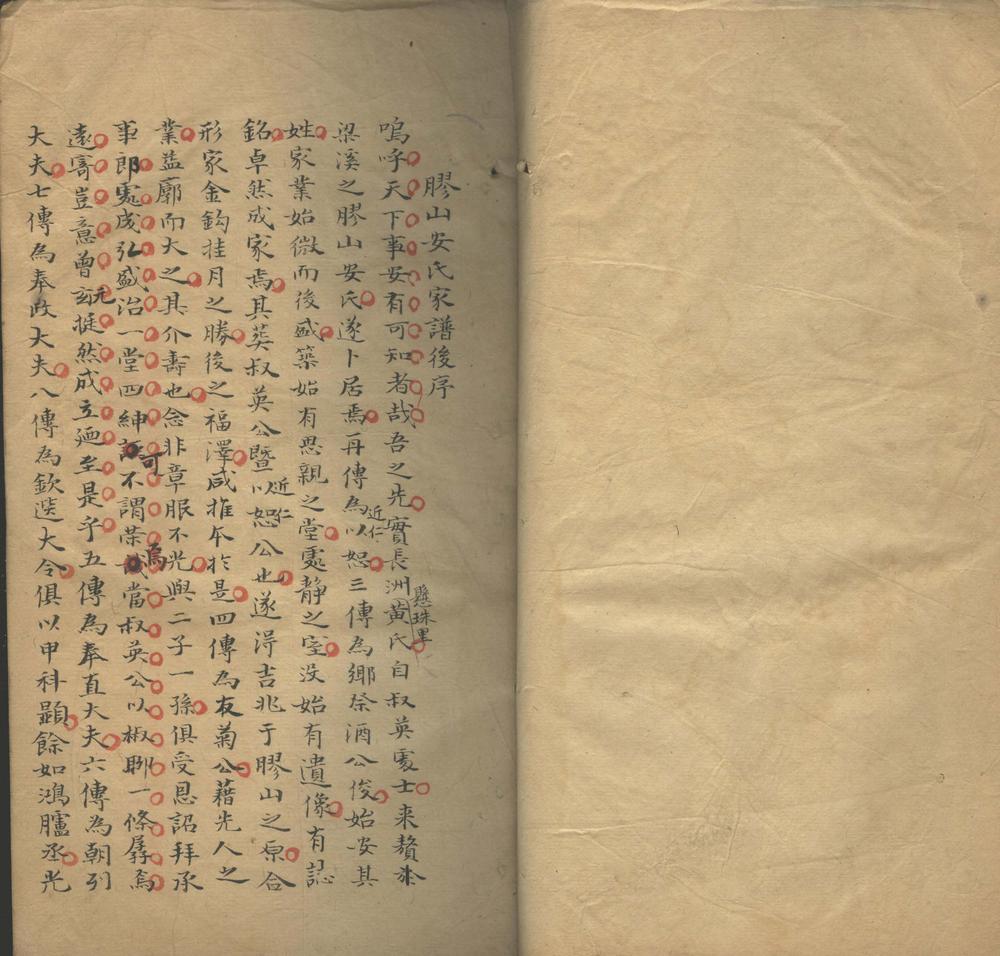 膠山安氏家譜後序
嗚呼天下事安有可知者哉吾之先實長洲黃氏自叔英處士来贅於
懸珠里
梁溪之膠山安氏遂卜居焉再傳為以恕三傳為鄉祭酒公俊始安其
近仁
姓家業始微而後盛築始有思親之堂處静之室没始有遺像有誌
銘卓然成家焉其葬叔英公暨以恕公也遂得吉兆于膠山之原合
近仁
形家金鈎挂月之勝後之福澤咸推本於是四傳為友菊公藉先人之
業益廓而大之其介壽也念非章服不光與二子一孫俱受恩詔拜承
事郎寔成弘盛治一堂四紳不謂荣當叔英公以椒聊一條孱焉
可
烏
遠寄豈意曾玄挺然成立廼至是乎五傳為奉直大夫六傳為朝列
元
大夫七傳為奉政大夫八傳為欽選大令俱以甲科顯餘如鴻臚丞光